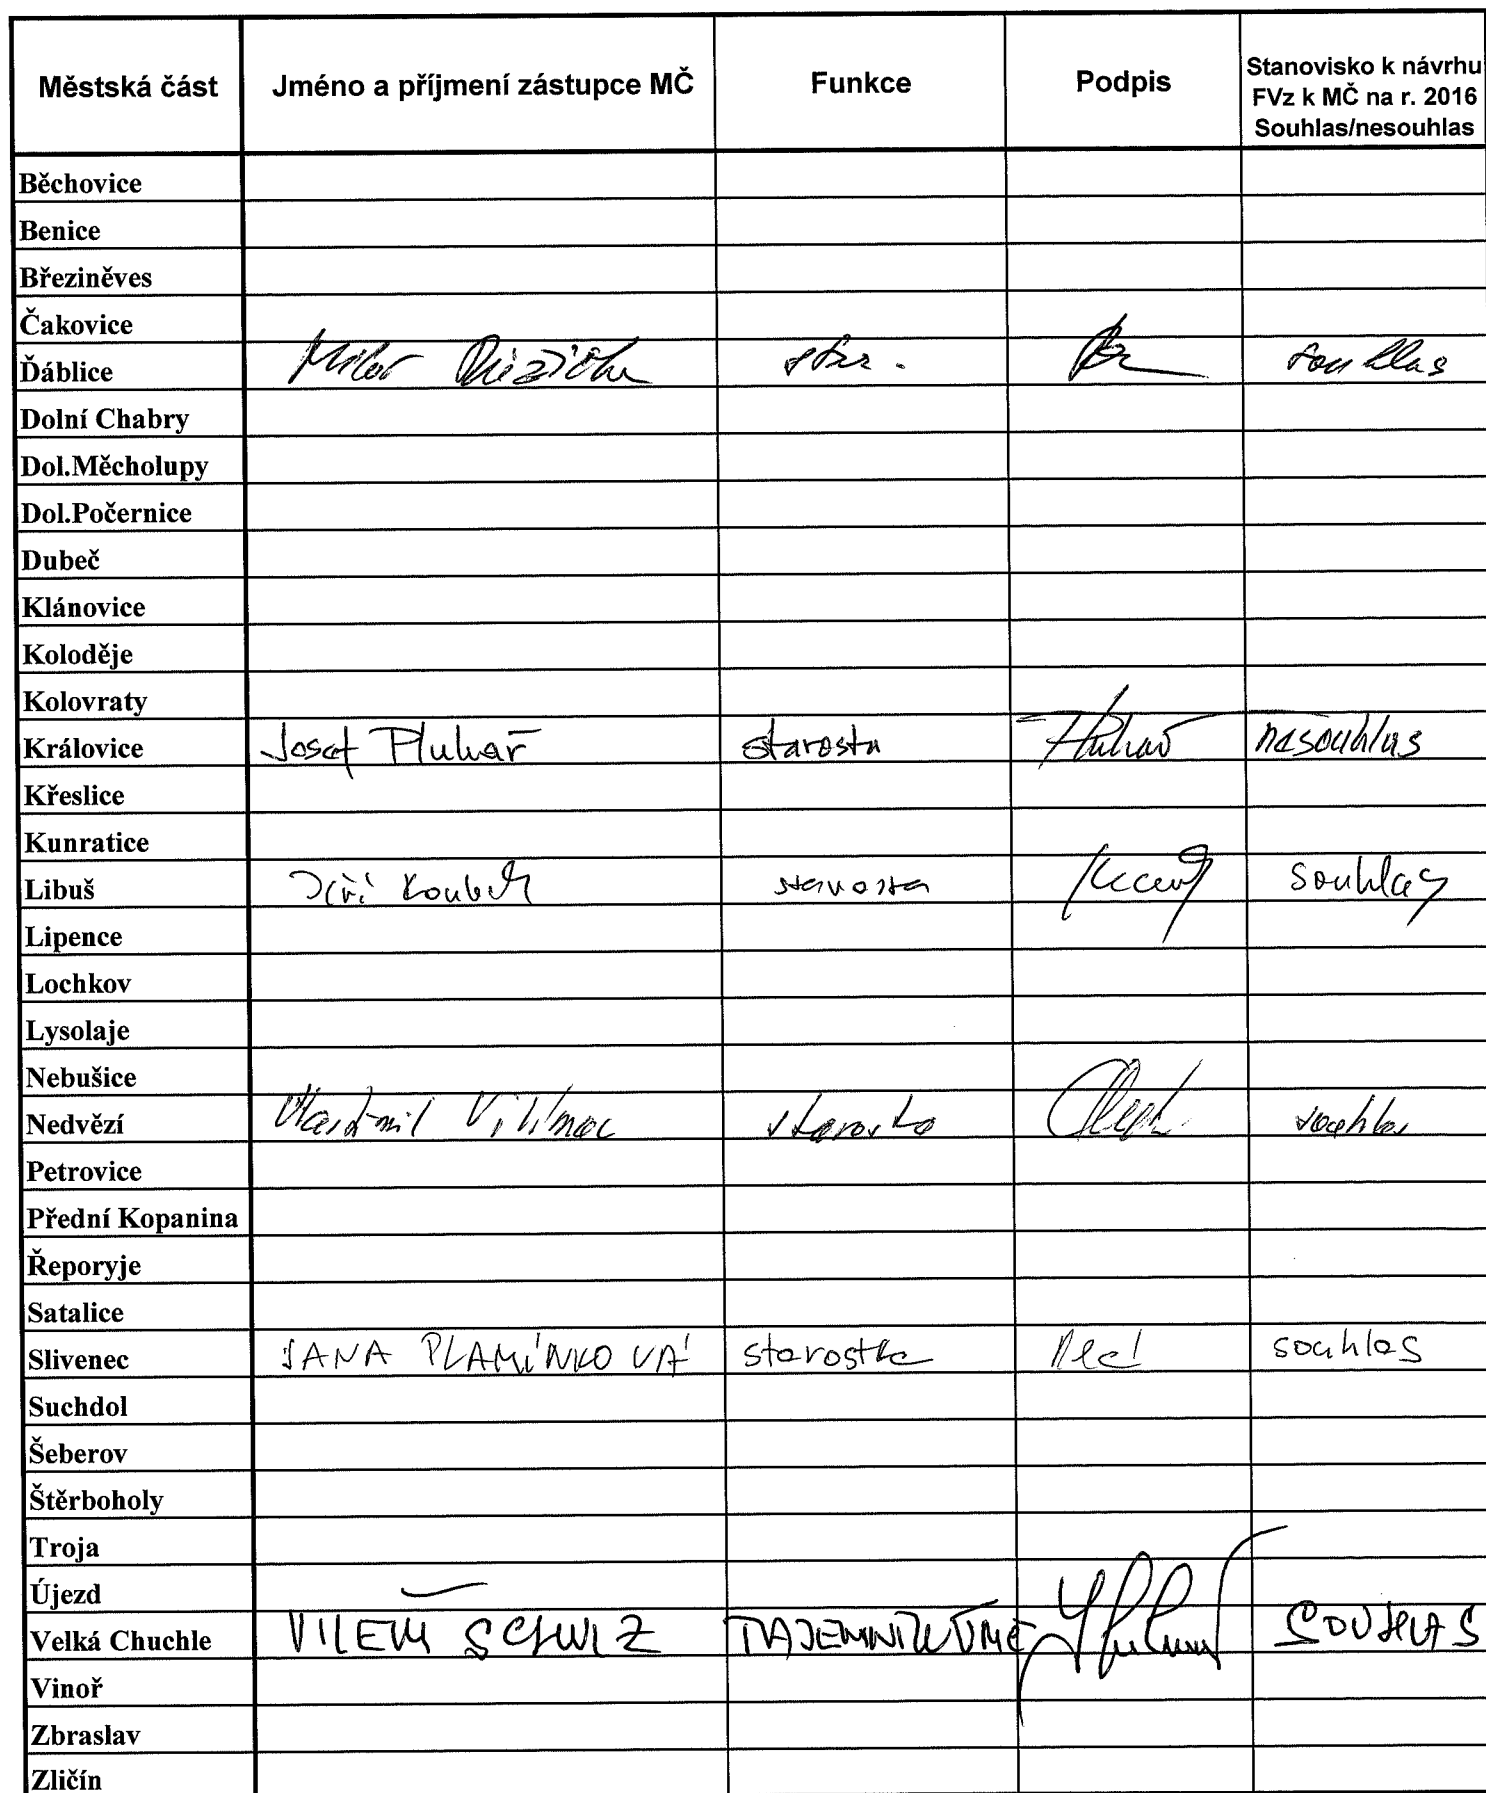 Městská část Jméno a příjmení zástupce MČ Funkce Podpis Stanovisko k návrhu
FVz k MČ na r. 2016
Souhlas/nesouhlas
Běchovice
Benice
Březiněves
Čakovice
Ďáblice Miloš Růžička star. souhlas
Dolní Chabry
Dol.Měcholupy
Dol.Počernice
Dubeč
Klánovice
Koloděje
Kolovraty
Královice Josef Pluhař starosta Pluhař nesouhlas
Křeslice
Kunratice
Libuš Jiří Koubek starosta souhlas
Lipence
Lochkov
Lysolaje
Nebušice
Nedvězí Vlastimil Vilímec starosta souhlas
Petrovice
Přední Kopanina
Řeporyje
Satalice
Slivenec JANA PLAMÍNKOVÁ starostka souhlas
Suchdol
Šeberov
Štěrboholy
Troja
Újezd
Velká Chuchle VILÉM SCHULZ TAJEMNÍK ÚMČ SOUHLAS
Vinoř
Zbraslav
Zličín